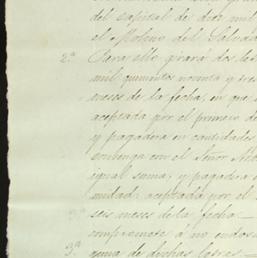 del capital de dos mil
el Molino del Salado
2.ª Para ello girará dos le
mil quinientos noventa y tres
meses de la fecha, en que s
aceptada por el primero de
y pagadera en cantidades
embargo con el Señor
igual suma, y pagadera
midad, aceptada por el
seis meses de la fecha —
compromete á no endos
3.ª guna de dichas letras —